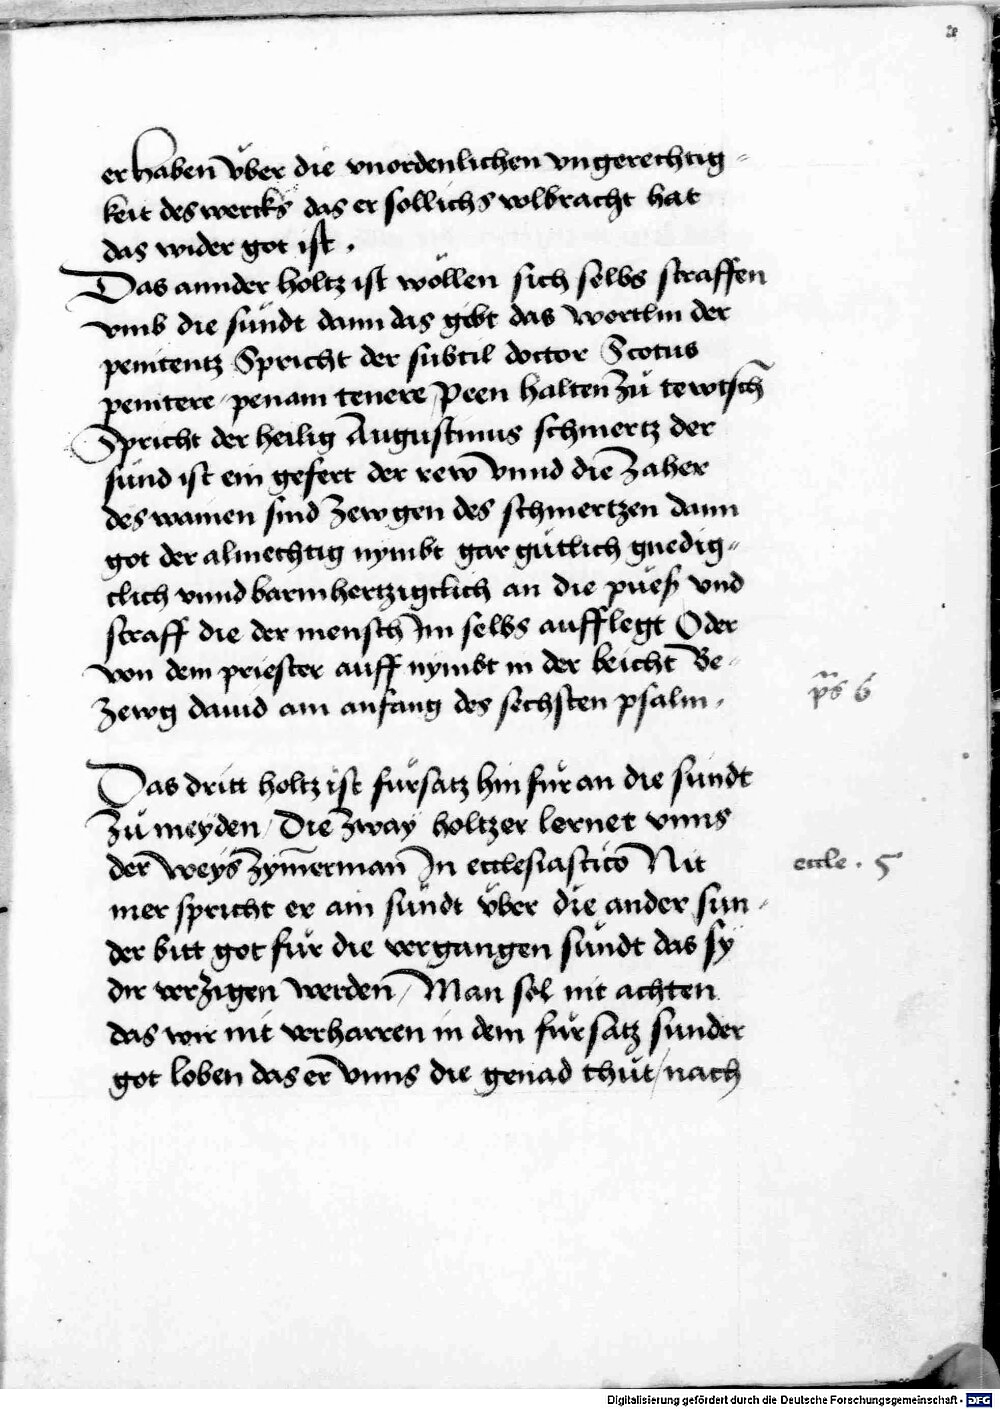 erhaben vͤber die vnordenlichen vngerechtig-
keit des wercks das er sollichs volbracht hat
das wider got ist .
Das annder holtz ist wöllen sich selbs straffen
vmb die sündt dann das gibt das wortlin der
penitentz Spricht der subtil doctor Scotus
penitere / penam tenere / Peen halten zů tewtsch
Spricht der heilig Augustinus schmertz der
sünd ist ein gefert der rew Vnnd die zäher
des wainen sind zewgen des schmertzen dann
got der almechtig nymbt gar gütlich gnedig-
clich vnnd barmhertzigclich an die pueß vnd
straff die der mensch Im selbs aufflegt Oder
von dem priester auff nymbt in der beicht Be-
zewg dauid am anfang des sechsten psalm .
ps 6
Das dritt holtz ist fürsatz hinfür an die sündt
zů meyden / Die zway höltzer lernet vnns
der weys zymerman In ecclesiastico Nit
eccle . 5
mer spricht er ain sündt vͤber die ander sun-
der bitt got für die vergangen sündt das sy
dir verzigen werden / Man sol nit achten
das wir nit verharren in dem fürsatz sunder
got loben das er Vnns die genad thůt / nach
Digitalisierung gefördert durch die Deutsche Forschungsgemeinschaft - DFG